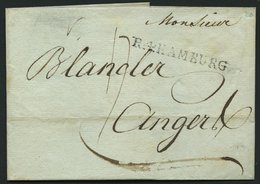 Monsieur
R.4.HAMBURG
Blancler
Angers